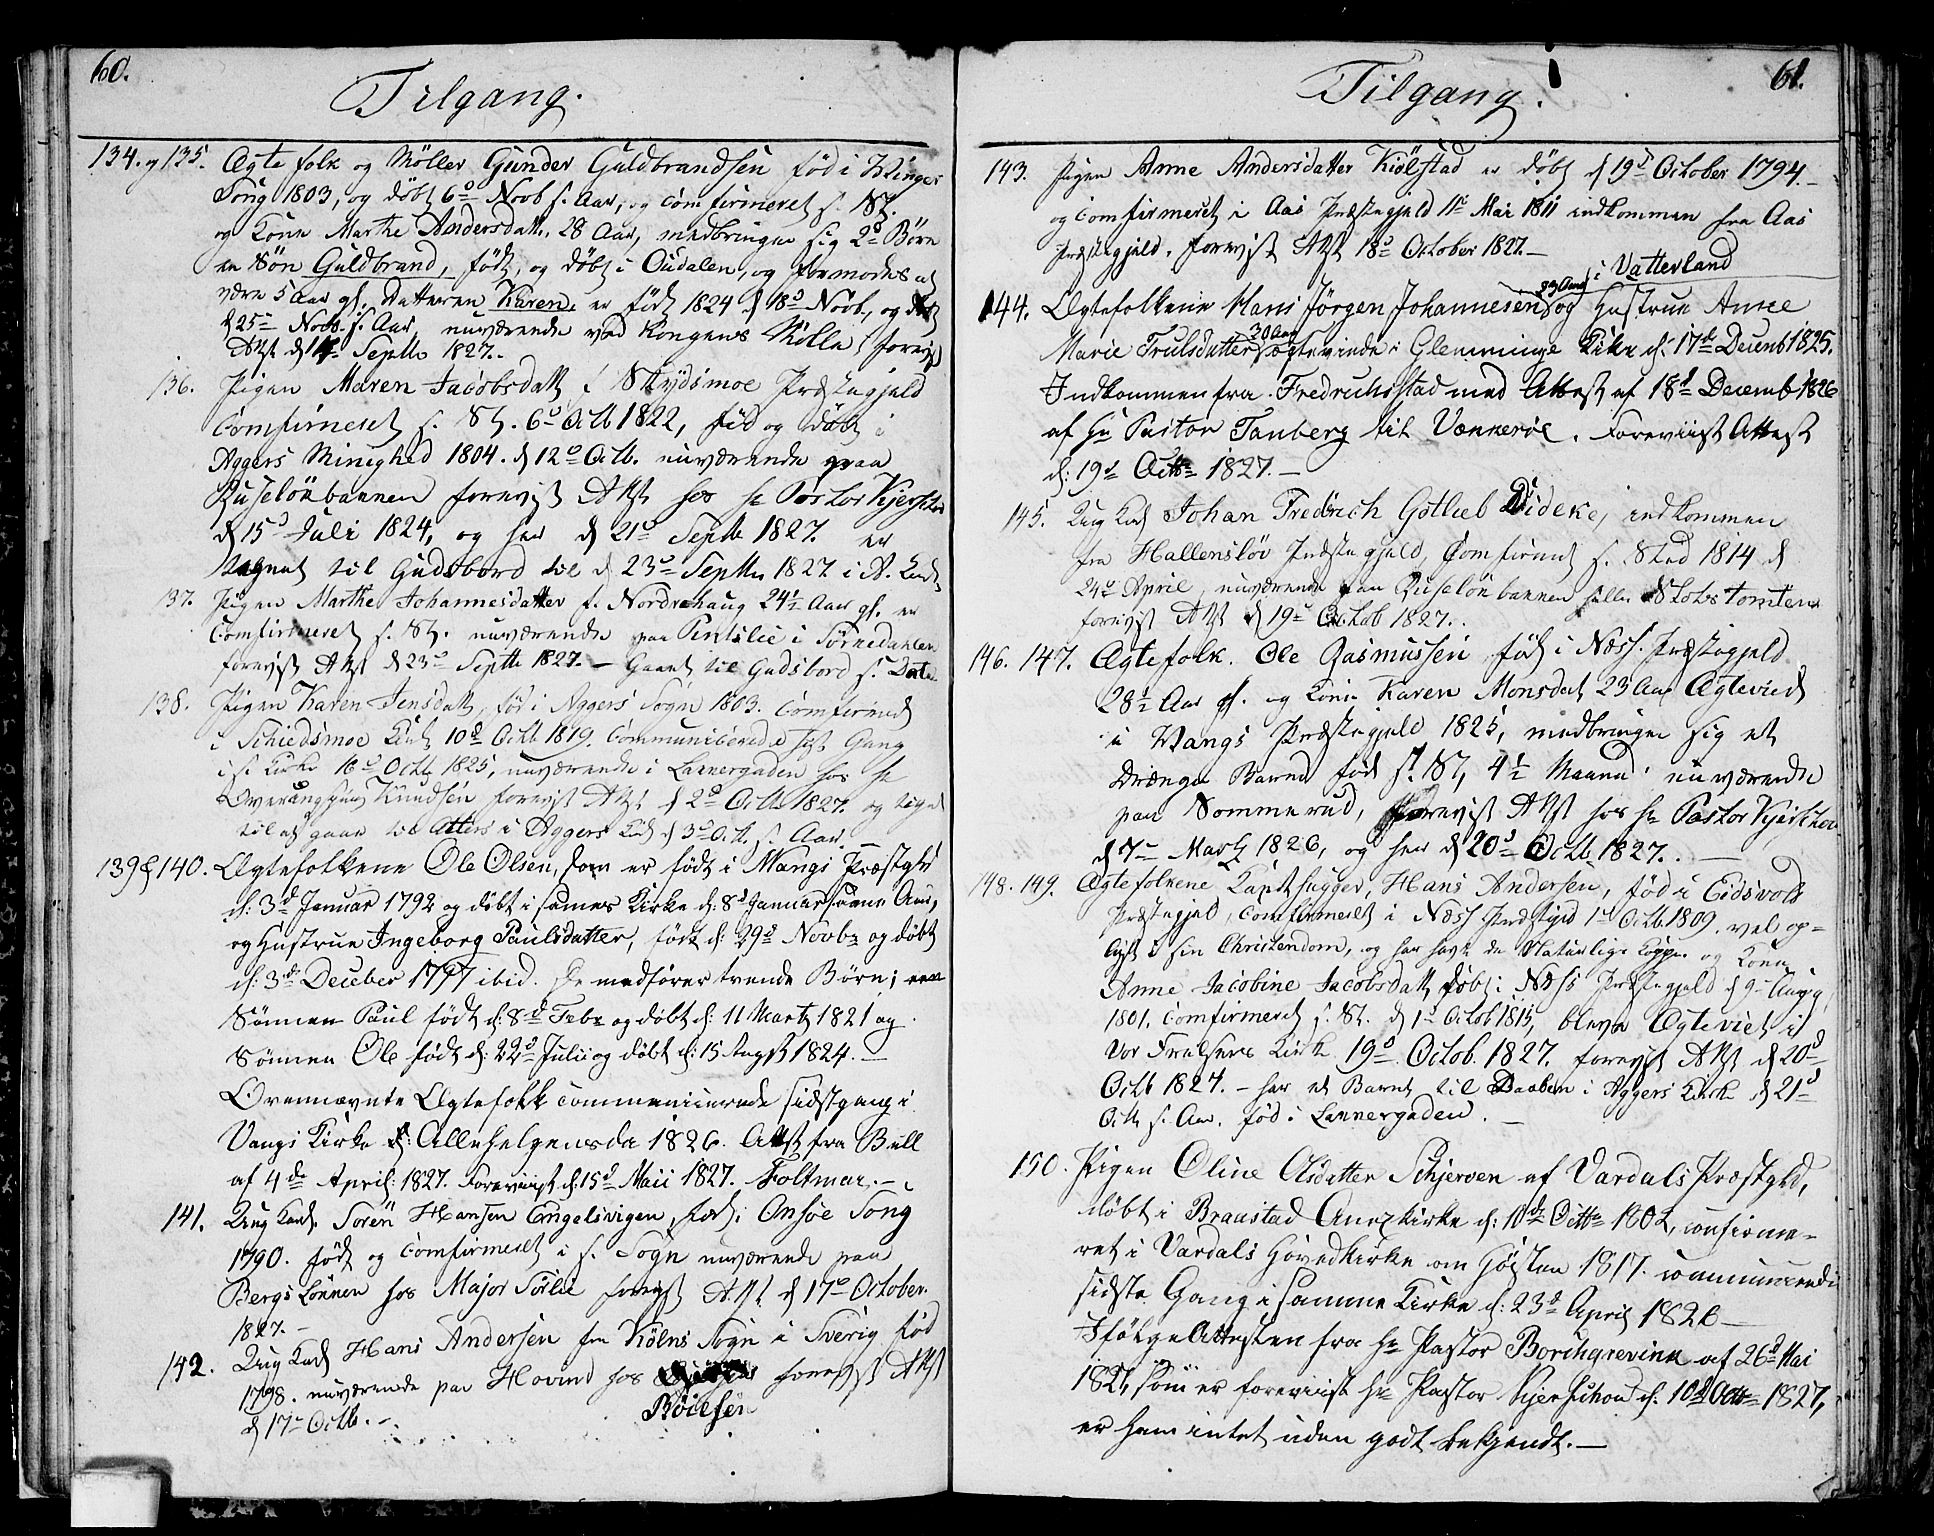 60.
Tilgang.
134. og 135. Ægte folk og Møller Gunder Guldbrandsen föd i
Song 1803, og döbt 6d Novb s. Aar, og comfirmeret s. St.
og Kone Marthe Andersdatt. 28 Aar, medbringer sig 2d Börn
en Sön Guldbrand, född, og döbt i Oudalen, og formodes at
være 5 Aar gl. Datteren Karen, er föd 1824 d 18d Novb., og döbt
d 25d Novb. s. Aar, nuværende ved Kongens Mölla, forevist
Attst d 14 Septb 1827.
136. Pigen Maren Jacobsdatt f Skydsmoe Præstegjeld
Comfirmeret s. St. 6d Octb 1822, föd og döbt i
Aggers Minighed 1804. d 12d Octb. nuværende paa
Ruselökbannen forevist Attst hos Hr Pastor Kjerschou
d 15d Juli 1824, og her d 21d Septb 1827. er
tegnet til Gudsbord til d 23d Septb 1827 i A. Kirk
137. Pigen Marthe Johannesdatter f. Nordrehaug 24½ Aar gl. er
Comfirmeret s. St. nuværende paa i Sörkedahlen
forevist Attst d 23d Septb 1827. — Gaaet til Gudsbord s. Dato
138. Pigen Karen Jensdatt, föd i Aggers Sogn 1803. Comfirmed
i Schiedsmoe Kirk 10d Octb 1819. Communiserede sist Gang
i s. Kirke 16d Octb 1825, nuværende i Lakkergaden hos Hr
Knudsen forevist Attst d 2d Octb 1827. og
til at gaae til Alters i Aggers Kirk d 3d Oct. s. Aar.
139 & 140. Ægtefolkene Ole Olsen, som er födt i Mangs Præstgld
d: 3d Januar 1792 og döbt i sammes Kirke d: 8d Januar samme Aar,
og Hustrue Ingeborg Paulsdatter, födt d: 29d Novbr og döbt
d: 3de December 1797 ibid. De medförer tvende Börn;
Sönnen Paul födt d: 8d Febr og döbt d: 11 Martz 1821 og
Sönnen Ole födt d: 22d Julii og döbt d: 15 Augst 1824. —
Ovennævnte Ægtefolk communicerede sidstgang i
Vangs Kirke d: Allehelgensda 1826. Attst fra Bull
af 4de April: 1827. Foreviist d: 15d Maii 1827. Foltmar. —
141. Ung Karl. Sören Hansen Engelsvigen, föd i Onsöe Song
1790. född og comfirmeret i s. Sogn nuværende paa
Bergs Lönnen hos Major Sörlie forevist Attst d 17d October
1827. —
142. Ung Karl Hans Andersen fra Kölns Sogn i Sverig föd
1798. nuværende paa Hovind hos forevist Attst
d 17d Octb. — Böilesen
61.
Tilgang.
143. Pigen Anne Andersdatter Kiölstad er döbt d 19d October 1794. —
og comfirmeret i Aas Præstegjeld 11te Mai 1811 indkommen fra Aas
Præstegjeld. forevist Attst 18d October 1827. —
i Vatterland
144. Ægtefolkene Hans Jörgen Johannesen og Hustrue Anne
Marie Trulsdatter 30 Aar ægteviede i Glemminge Kirke d. 17de Decemb 1825.
Indkommen fra Fredrichsstad med Attest af 18d Decemb 1826
af Hr Pastor Tanberg til Vænnerne. Foreviist Attest
d: 19d Octbr 1827. —
145. Ung Karl Johan Fredrich Gotlieb Dideke, indkommen
fra Hallenslöv Præstegjeld, Comfirmet s. Sted 1814 d
24d April, nuværende paa Ruselökbannen eller Slotstomten
forevist Attst d 19d Octob 1827.
146. 147. Ægtefolk. Ole Rasmussen född i Næss. Præstegjeld
28½ Aar gl. og Kone Karen Monsdat 23 Aar Ægtevied
i Wangs Præstegjeld 1825, medbringer sig et
Drænge Barn föd s. St, 4½ Maaned. nuværende
paa Sommerud, forevist Attst hos Hr Pastor Kjerschou
d 7d Martz 1826, og her d 20d Octb 1827. —
148. 149. Ægtefolkene Hans Andersen, föd i Eidsvols
Præstegjeld, comfirmeret i Næss Præstgjd 1d Octb. 1809. vel op-
lyst i sin Christendom, og har havt de Naturlige Kopper og Kone
Anne Jacobine Jacobsdatt, döbt i Næss Præstegjeld d 9d Aug
1801. comfirmeret s. St. d 1d Octob 1815, bleve Ægteviet i
Vor Frelsers Kirk 19d Octob. 1827. forevist Attst d 20d
Octb 1827. — har et Barn til Daaben i Aggers Kirk d 21d
Octb s. Aar. föd i Lakkergaden. —
150. Pigen Oline Olsdatter Schjerven af Vardals Præstgld,
döbt i Braastad Kirke d: 10de Octbr 1802, confirme-
ret i Vardals Hovedkirke om Hösten 1817. communicerede
sidste Gang i samme Kirke d: 23d April 1826 —
Ifölge Attesten fra Hr Pastor Borchgrevink af 26d Mai
1826, som er foreviist Hr Pastor Kjerschou d: 10d Octbr 1827,
er ham intet uden godt bekjendt. —